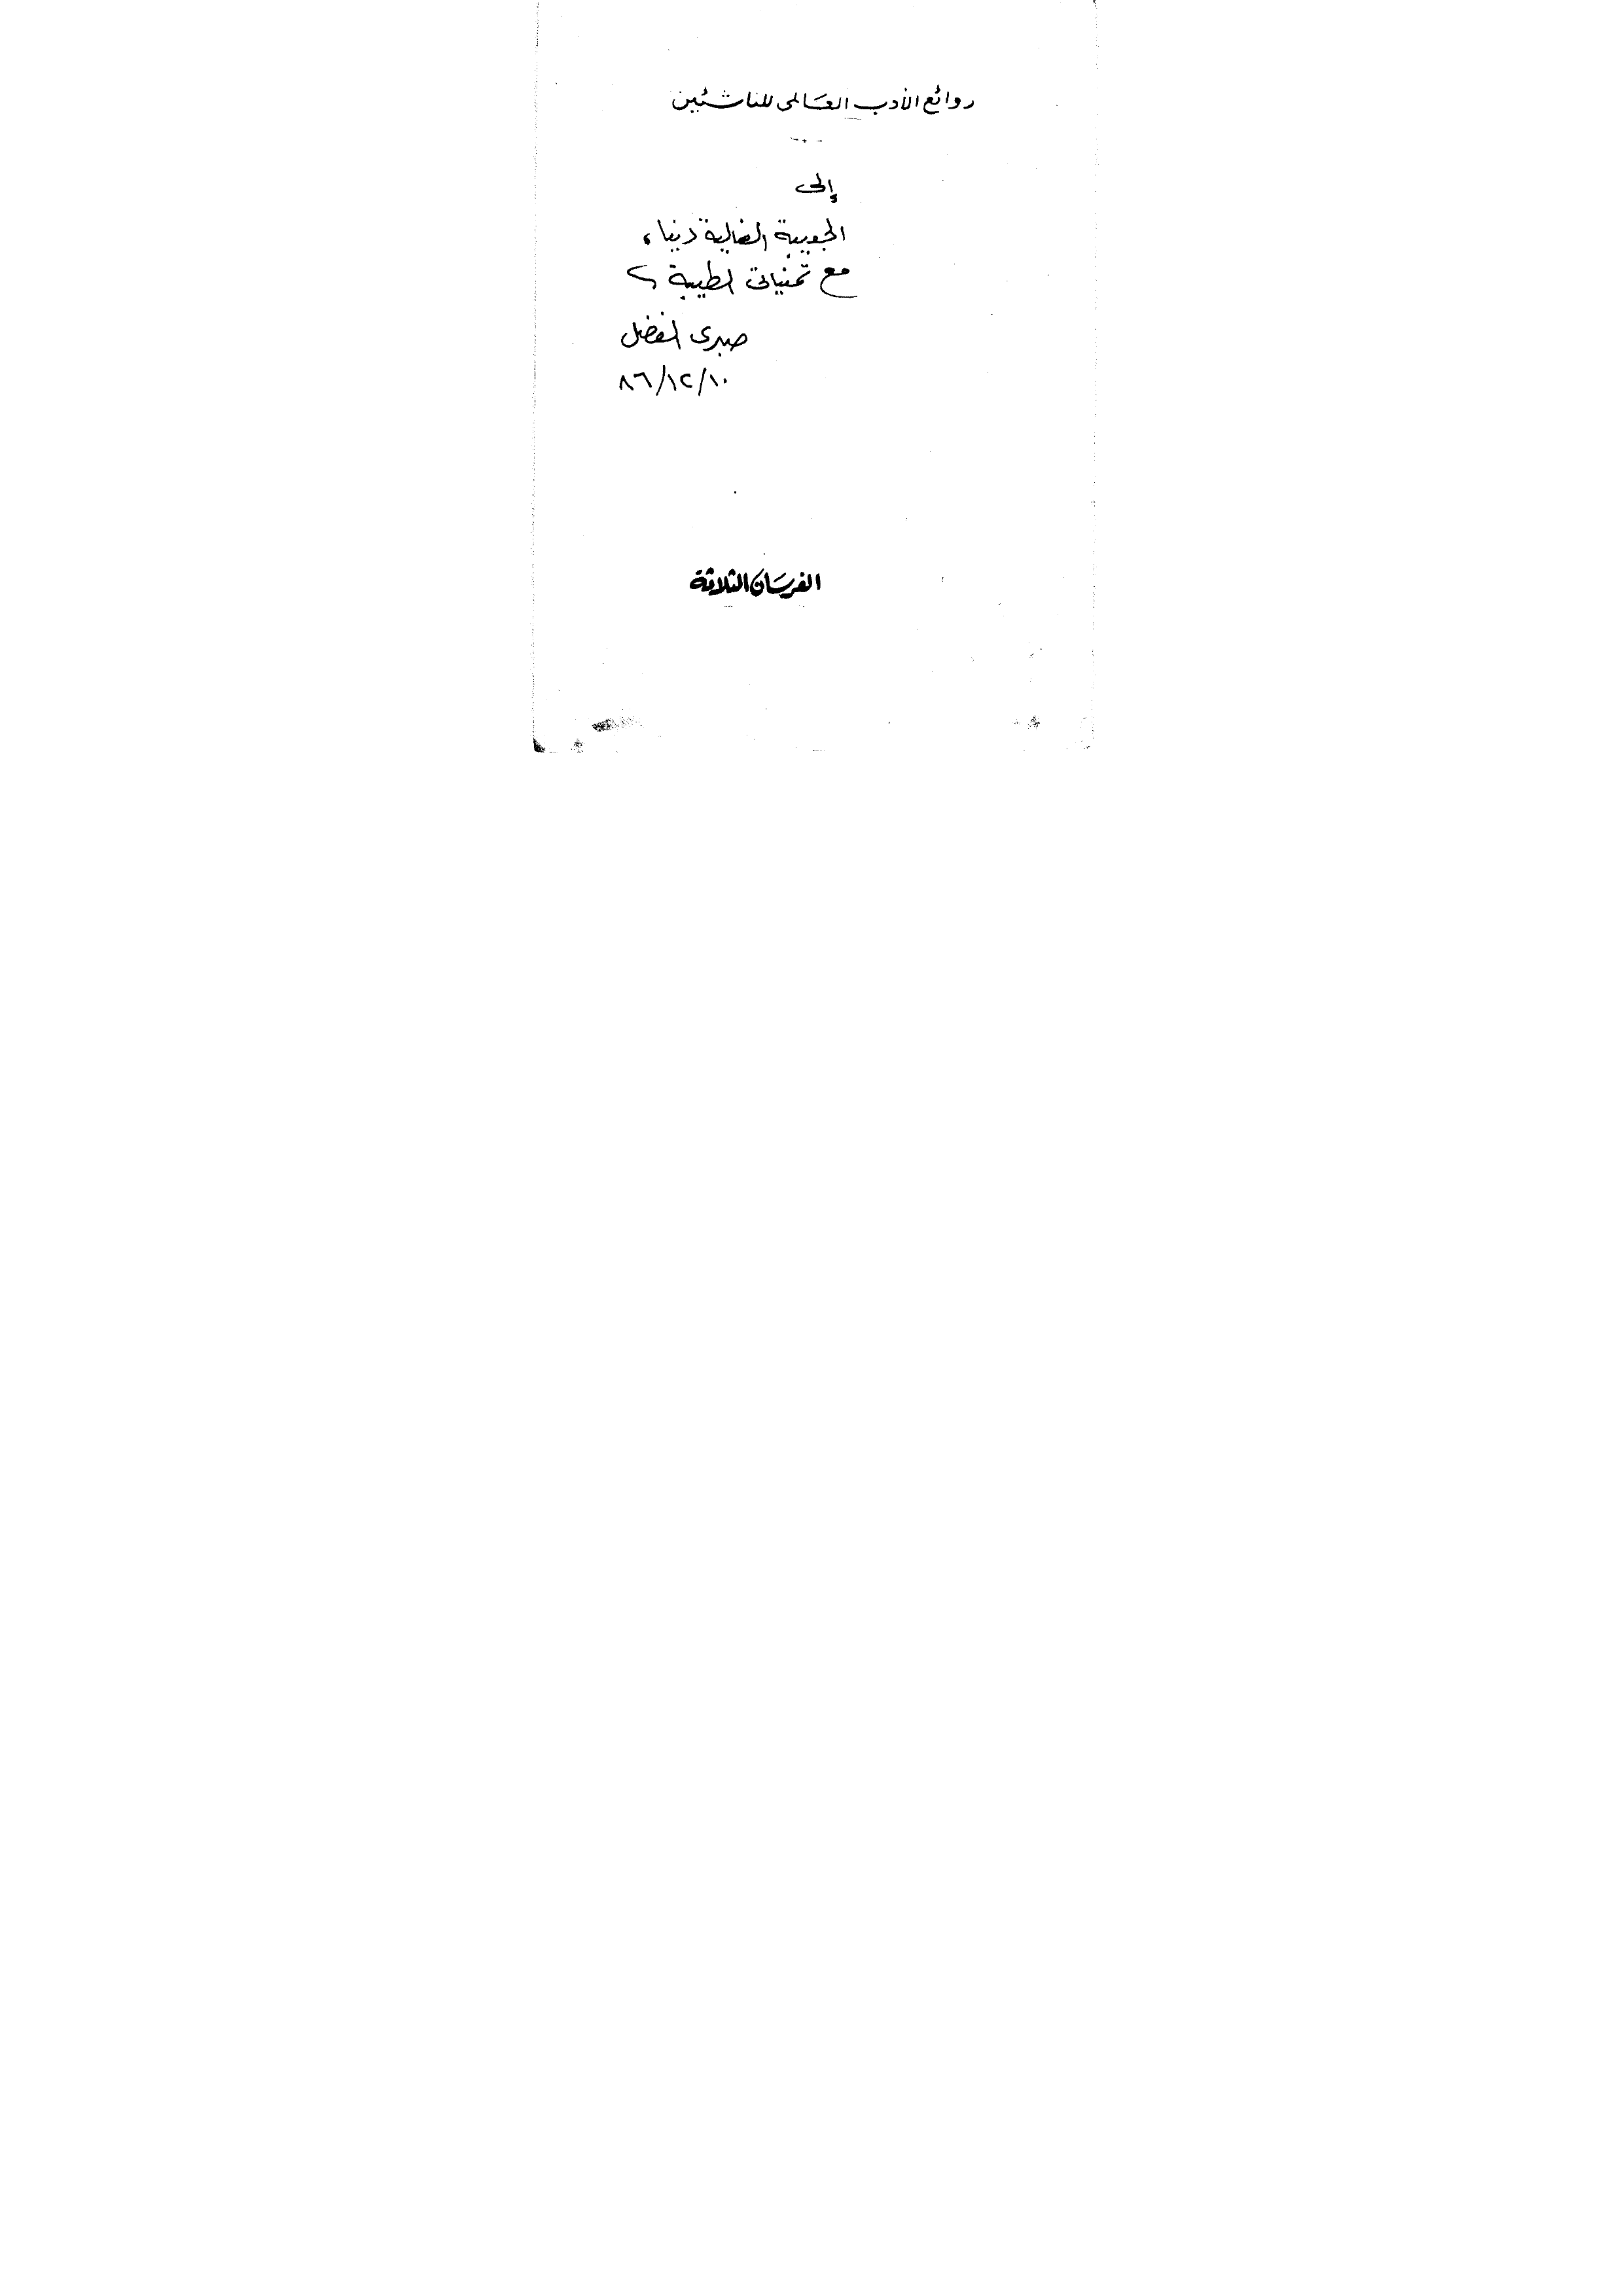 روائع الأدب العالمى للناشئين
إلى
الحبيبة الغالية دينا،
مع تمنياتى الطيبة
صبرى الفضل
٨٦/١٢/١٠
الفرسان الثلاثة